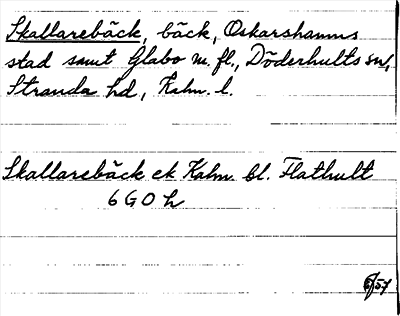 Skallarebäck, bäck, Oskarshamns
stad samt Glabo m. fl., Döderhults sn,
Stranda hd, Kalm. l.
Skallarebäck ek Kalm. bl. Flathult
6 G O h
6/57